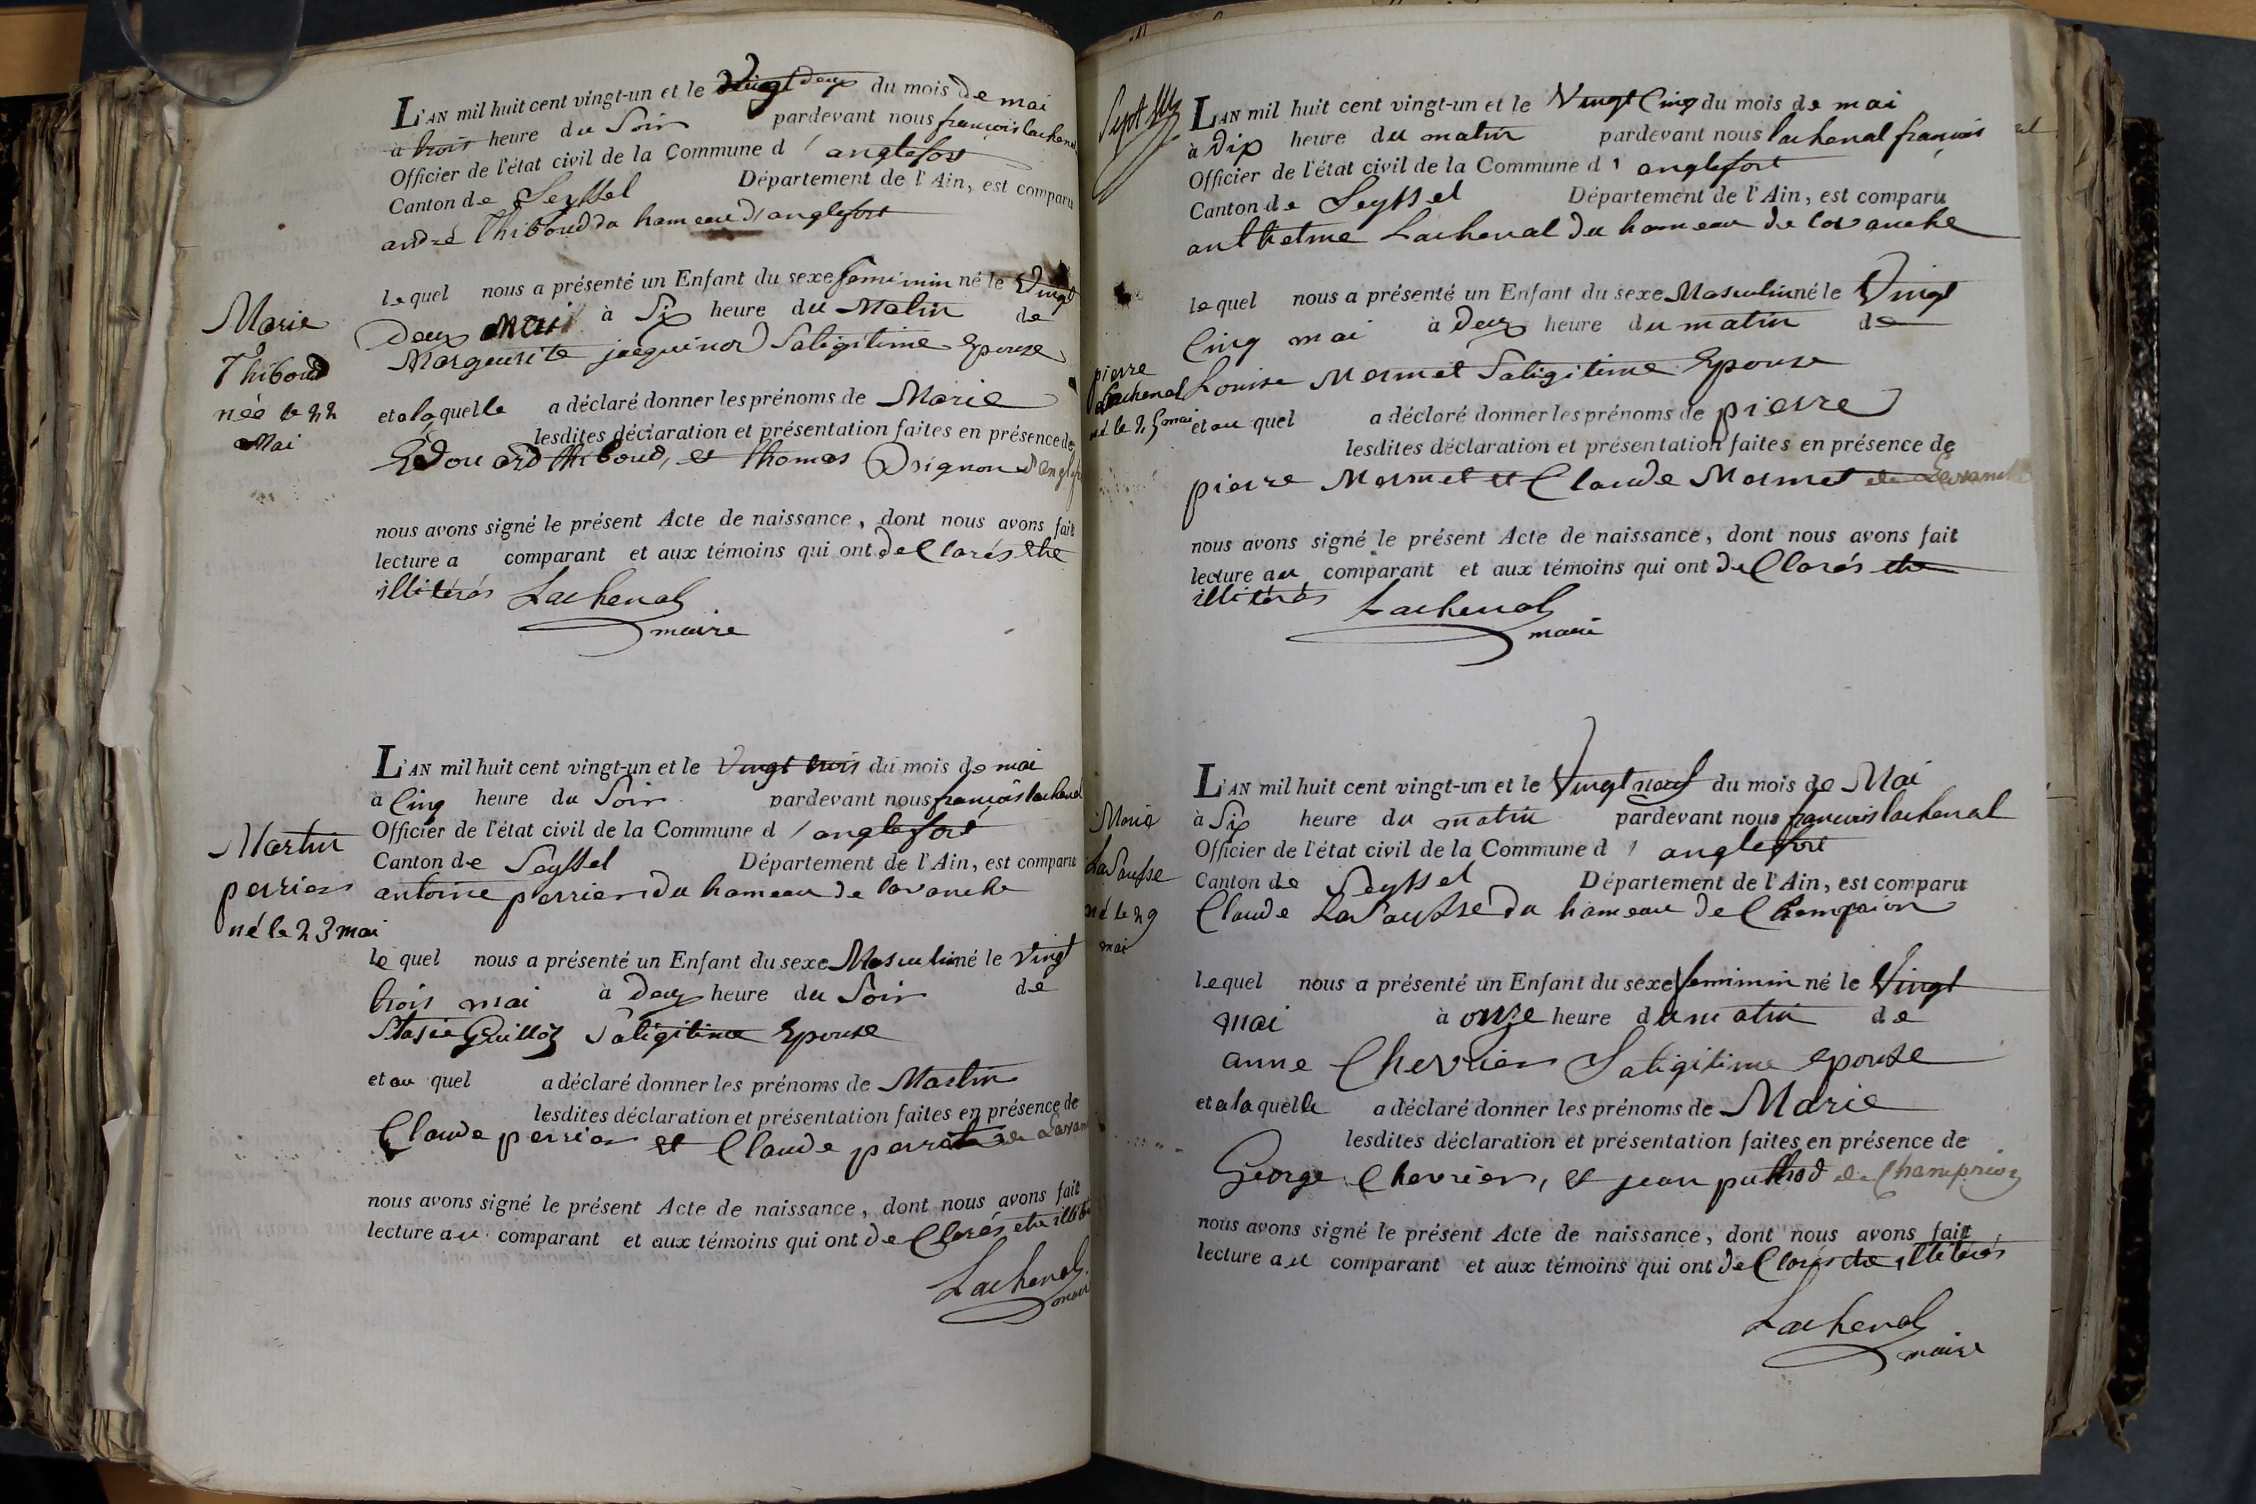 L'AN mil huit cent vingt-un et le Vingt deux du mois de mai
à trois heure du Soir pardevant nous françois lachenal
Officier de l'état civil de la Commune d'anglefort
Canton de Seyssel Département de l'Ain, est comparu
andré Thiboud du hameau d'anglefort
lequel nous a présenté un Enfant du sexe feminin né le Vingt
Deux mai à Six heure du Matin de
Marguerite jacquinod Saligitime Epouse
et a laquelle a déclaré donner les prénoms de Marie
lesdites déclaration et présentation faites en présence de
Edouard thiboud, et thomas
nous avons signé le présent Acte de naissance, dont nous avons fait
lecture a comparant et aux témoins qui ont declarés etre
illitérés Lachenal
maire
Marie
Thiboud
née le 22
Mai
L'AN mil huit cent vingt-un et le Vingt trois du mois de mai
à Cinq heure du Soir pardevant nous françois lachenal
Officier de l'état civil de la Commune d'anglefort
Canton de Seyssel Département de l'Ain, est comparu
antoine perrier du hameau de lavanche
lequel nous a présenté un Enfant du sexe Masculin né le Vingt
trois mai à Deux heure du Soir de
Stasie Guillot Saligitime Epouse
et au quel a déclaré donner les prénoms de Martin
lesdites déclaration et présentation faites en présence de
Claude perrier et Claude
nous avons signé le présent Acte de naissance, dont nous avons fait
lecture au comparant et aux témoins qui ont declarés etre
Lachenal
maire
Martin
perrier
né le 23 mai
Sept
L'AN mil huit cent vingt-un et le Vingt Cinq du mois de mai
à Dix heure du matin pardevant nous lachenal françois
Officier de l'état civil de la Commune d'anglefort
Canton de Seyssel Département de l'Ain, est comparu
anthelme Lachenal du hameau de lavanche
lequel nous a présenté un Enfant du sexe Masculin né le Vingt
Cinq mai à Deux heure du matin de
Louise Mermet Saligitime Epouse
et au quel a déclaré donner les prénoms de pierre
lesdites déclaration et présentation faites en présence de
pierre Mermet et Claude Mermet de Lavanche
nous avons signé le présent Acte de naissance, dont nous avons fait
lecture au comparant et aux témoins qui ont declarés etre
illitérés Lachenal
maire
pierre
Lachenal
né le 25 mai
L'AN mil huit cent vingt-un et le Vingt neuf du mois de Mai
à Six heure du matin pardevant nous françois lachenal
Officier de l'état civil de la Commune d'anglefort
Canton de Seyssel Département de l'Ain, est comparu
Claude LaSausse du hameau de Champrion
lequel nous a présenté un Enfant du sexe feminin né le Vingt
mai à onze heure du matin de
anne Chevrier Saligitime epouse
et a laquelle a déclaré donner les prénoms de Marie
lesdites déclaration et présentation faites en présence de
George Chevrier, et jean puthod de Champrion
nous avons signé le présent Acte de naissance, dont nous avons fait
lecture au comparant et aux témoins qui ont declarés etre illitérés
Lachenal
maire
Marie
LaSausse
né le 29
mai